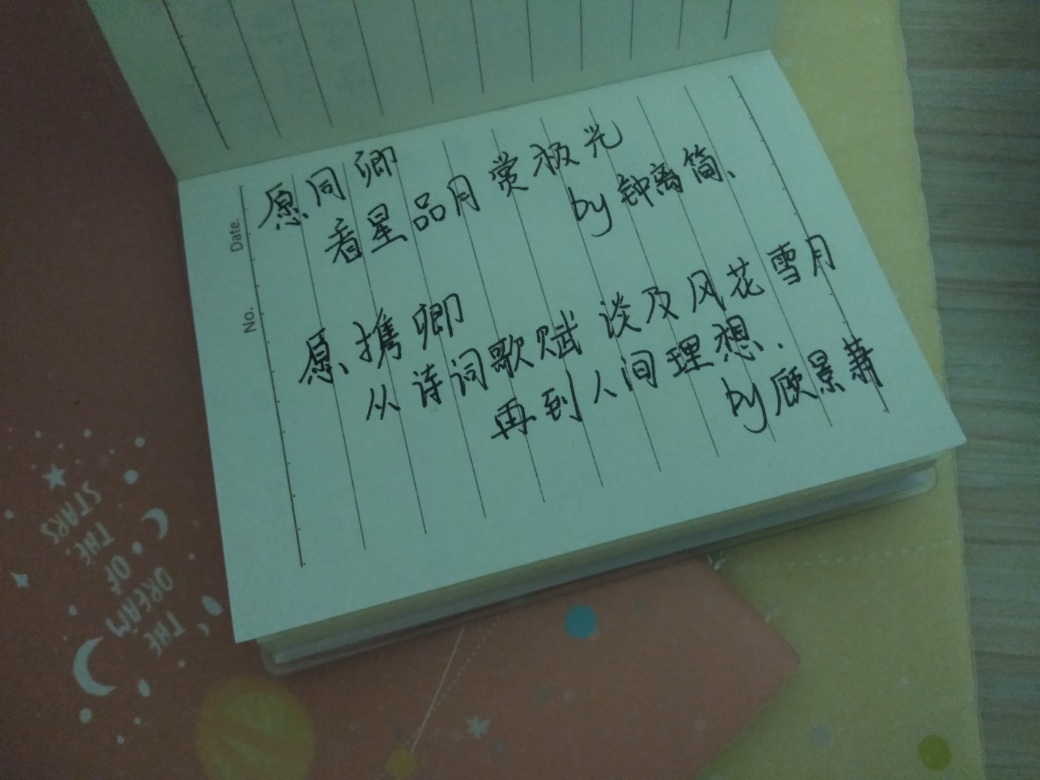 愿同卿
看星品月赏极光
by 钟离简、
愿携卿
从诗词歌赋 谈及风花雪月
再到人间理想.
by 顾景
Date.
No.
THE
DREAM
OF
THE
STARS